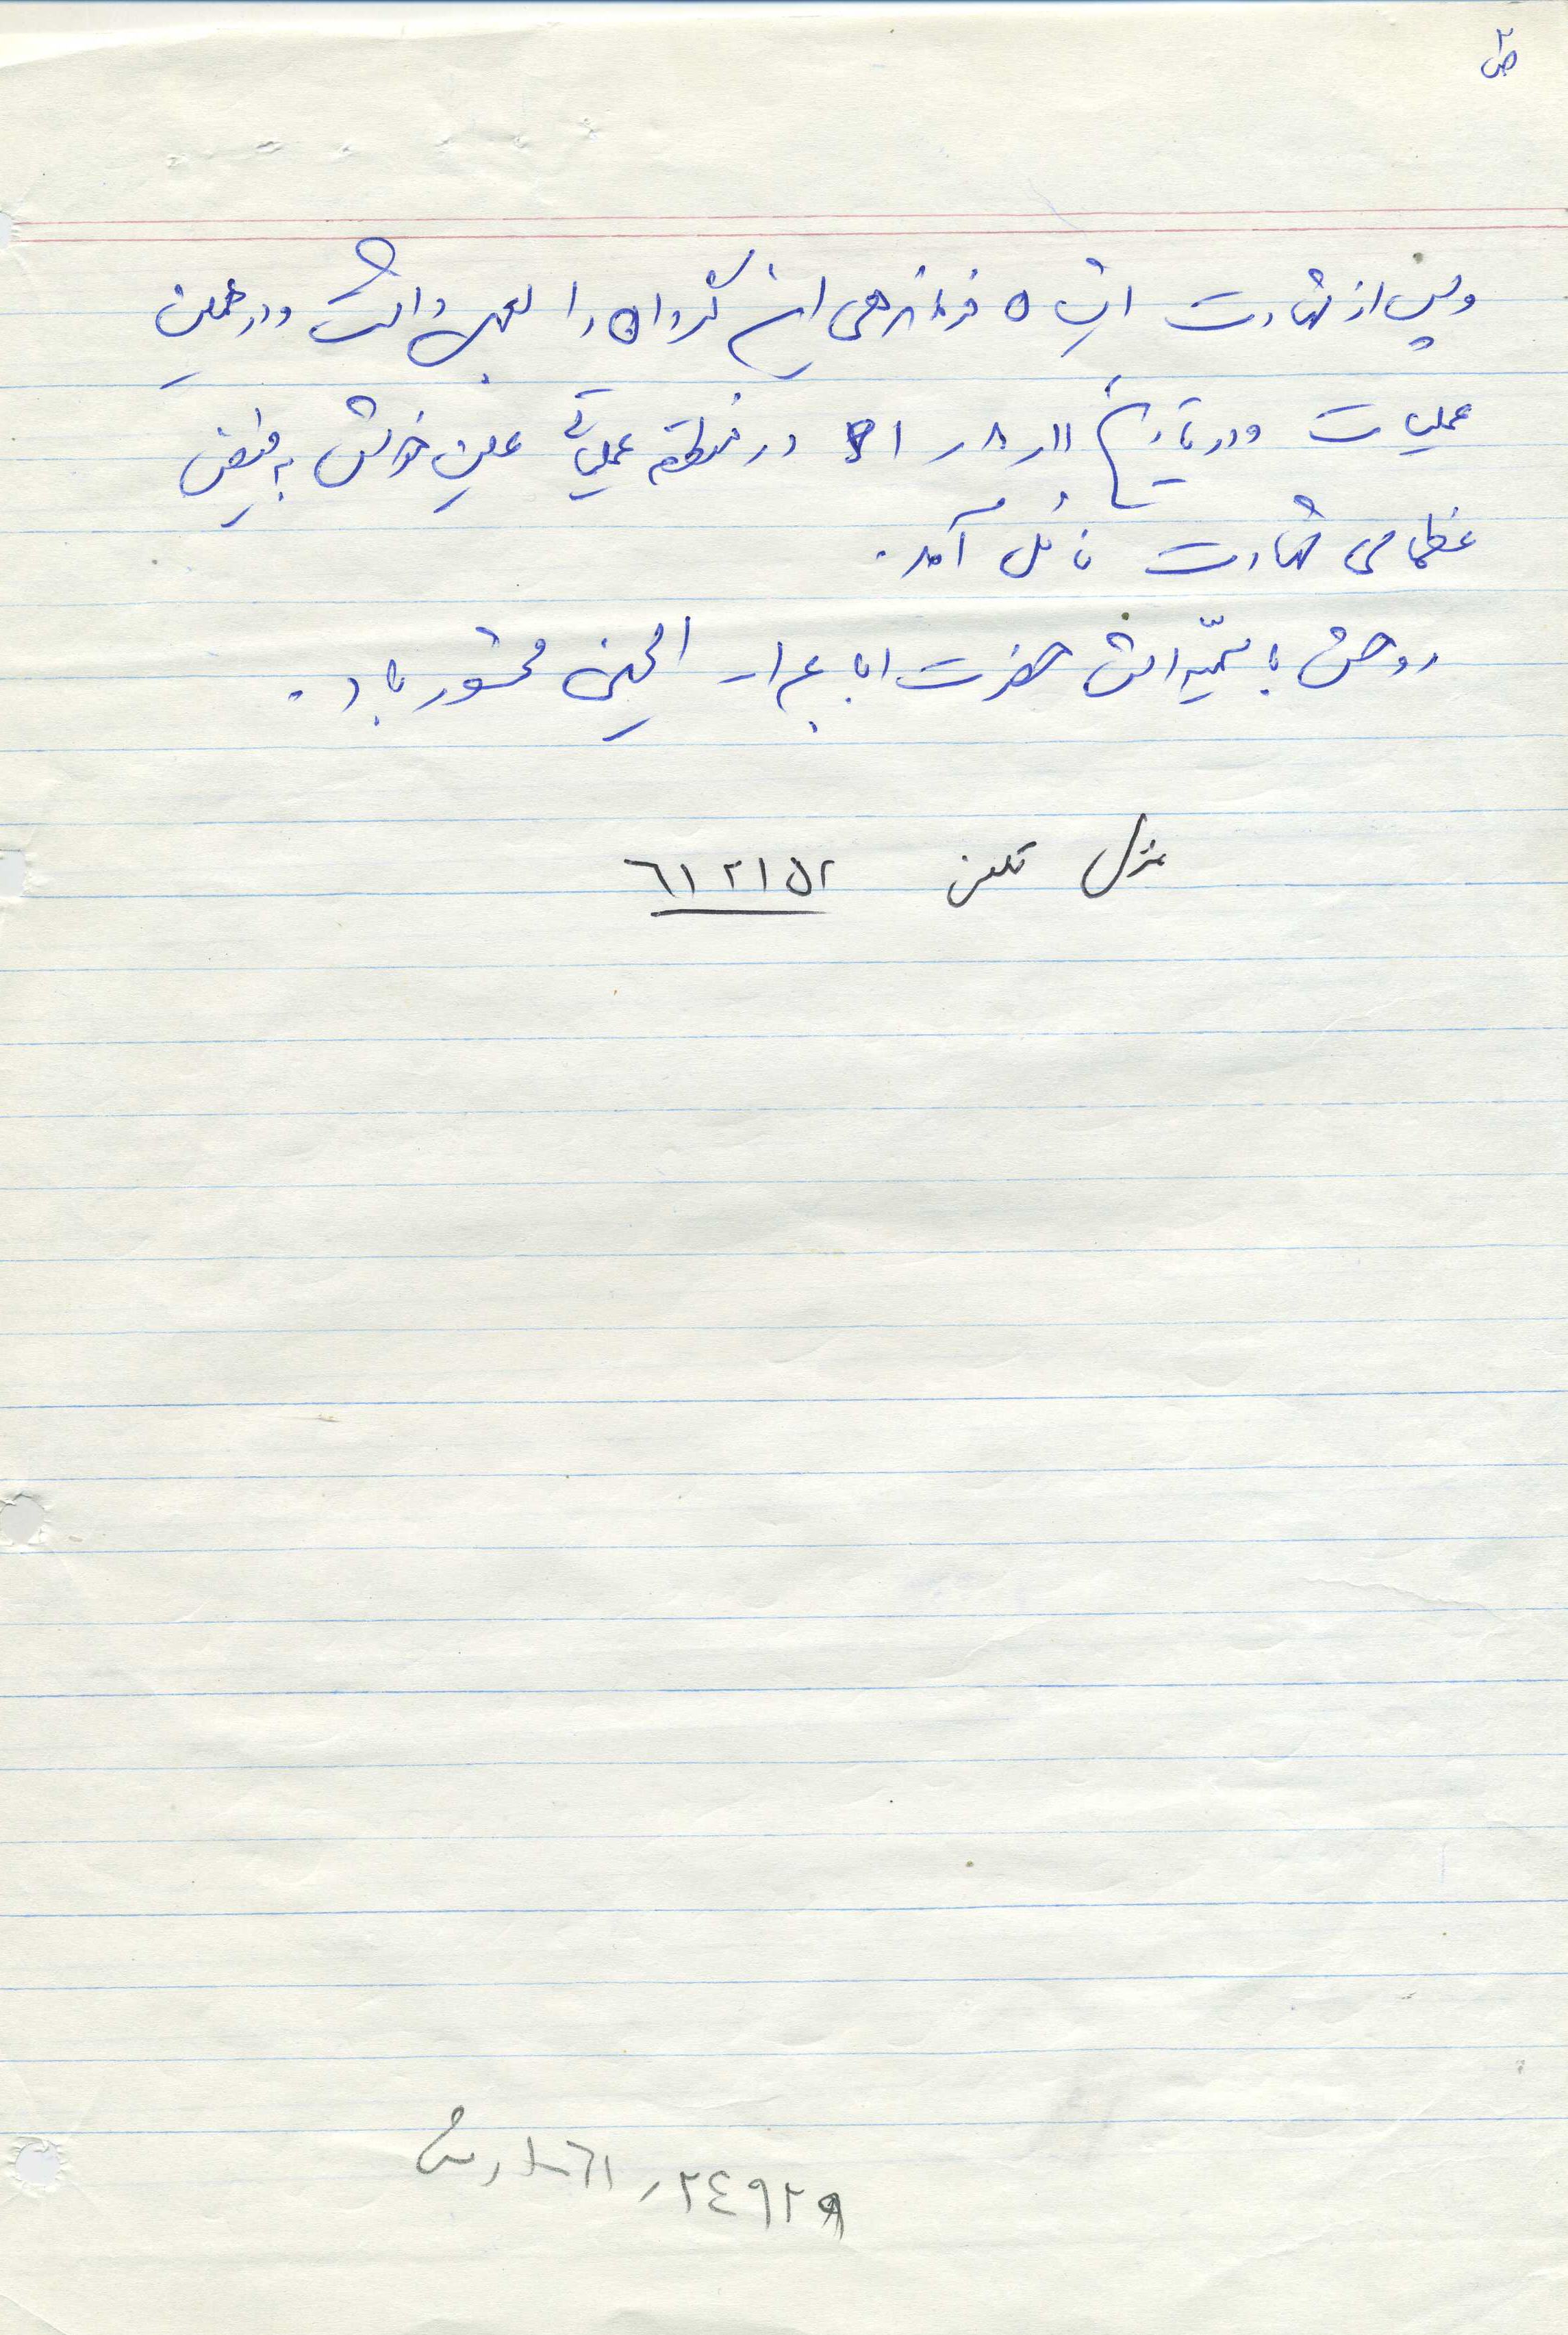 ص ۲
وپس از شهادت ایشان فرماندهی این گردان را بعهده داشت ودرهمین
عملیات ودر تاریخ ۱۱ر۸ر۶۱ در منطقه عملیاتی عین خوش به فیض
عظمای شهادت نائل آمد.
روحش با سمیّه اش حضرت ابا عبدا... الحسین محشور باد.
منزل تلفن ۶۱۲۱۵۲